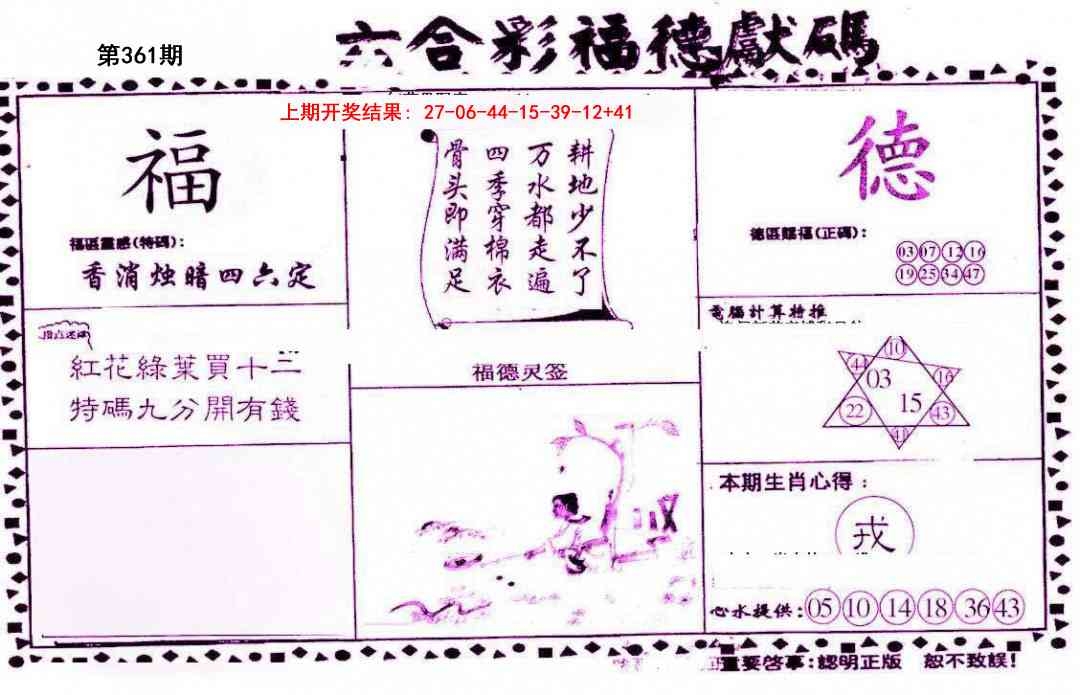 六合彩福德獻碼
第361期
上期开奖结果: 27-06-44-15-39-12+41
福
福區靈感(特碼):
香消烛暗四六定
紅花綠葉買十三
特碼九分開有錢
耕地少不了
万水都走遍
四季穿棉衣
骨头即满足
福德灵签
德
德區賜福(正碼):
03 07 12 16
19 25 34 47
電腦計算特推
10
44 03 16
22 15 43
41
本期生肖心得:
戎
心水提供: 05 10 14 18 36 43
重要啓事:認明正版 恕不致誤!